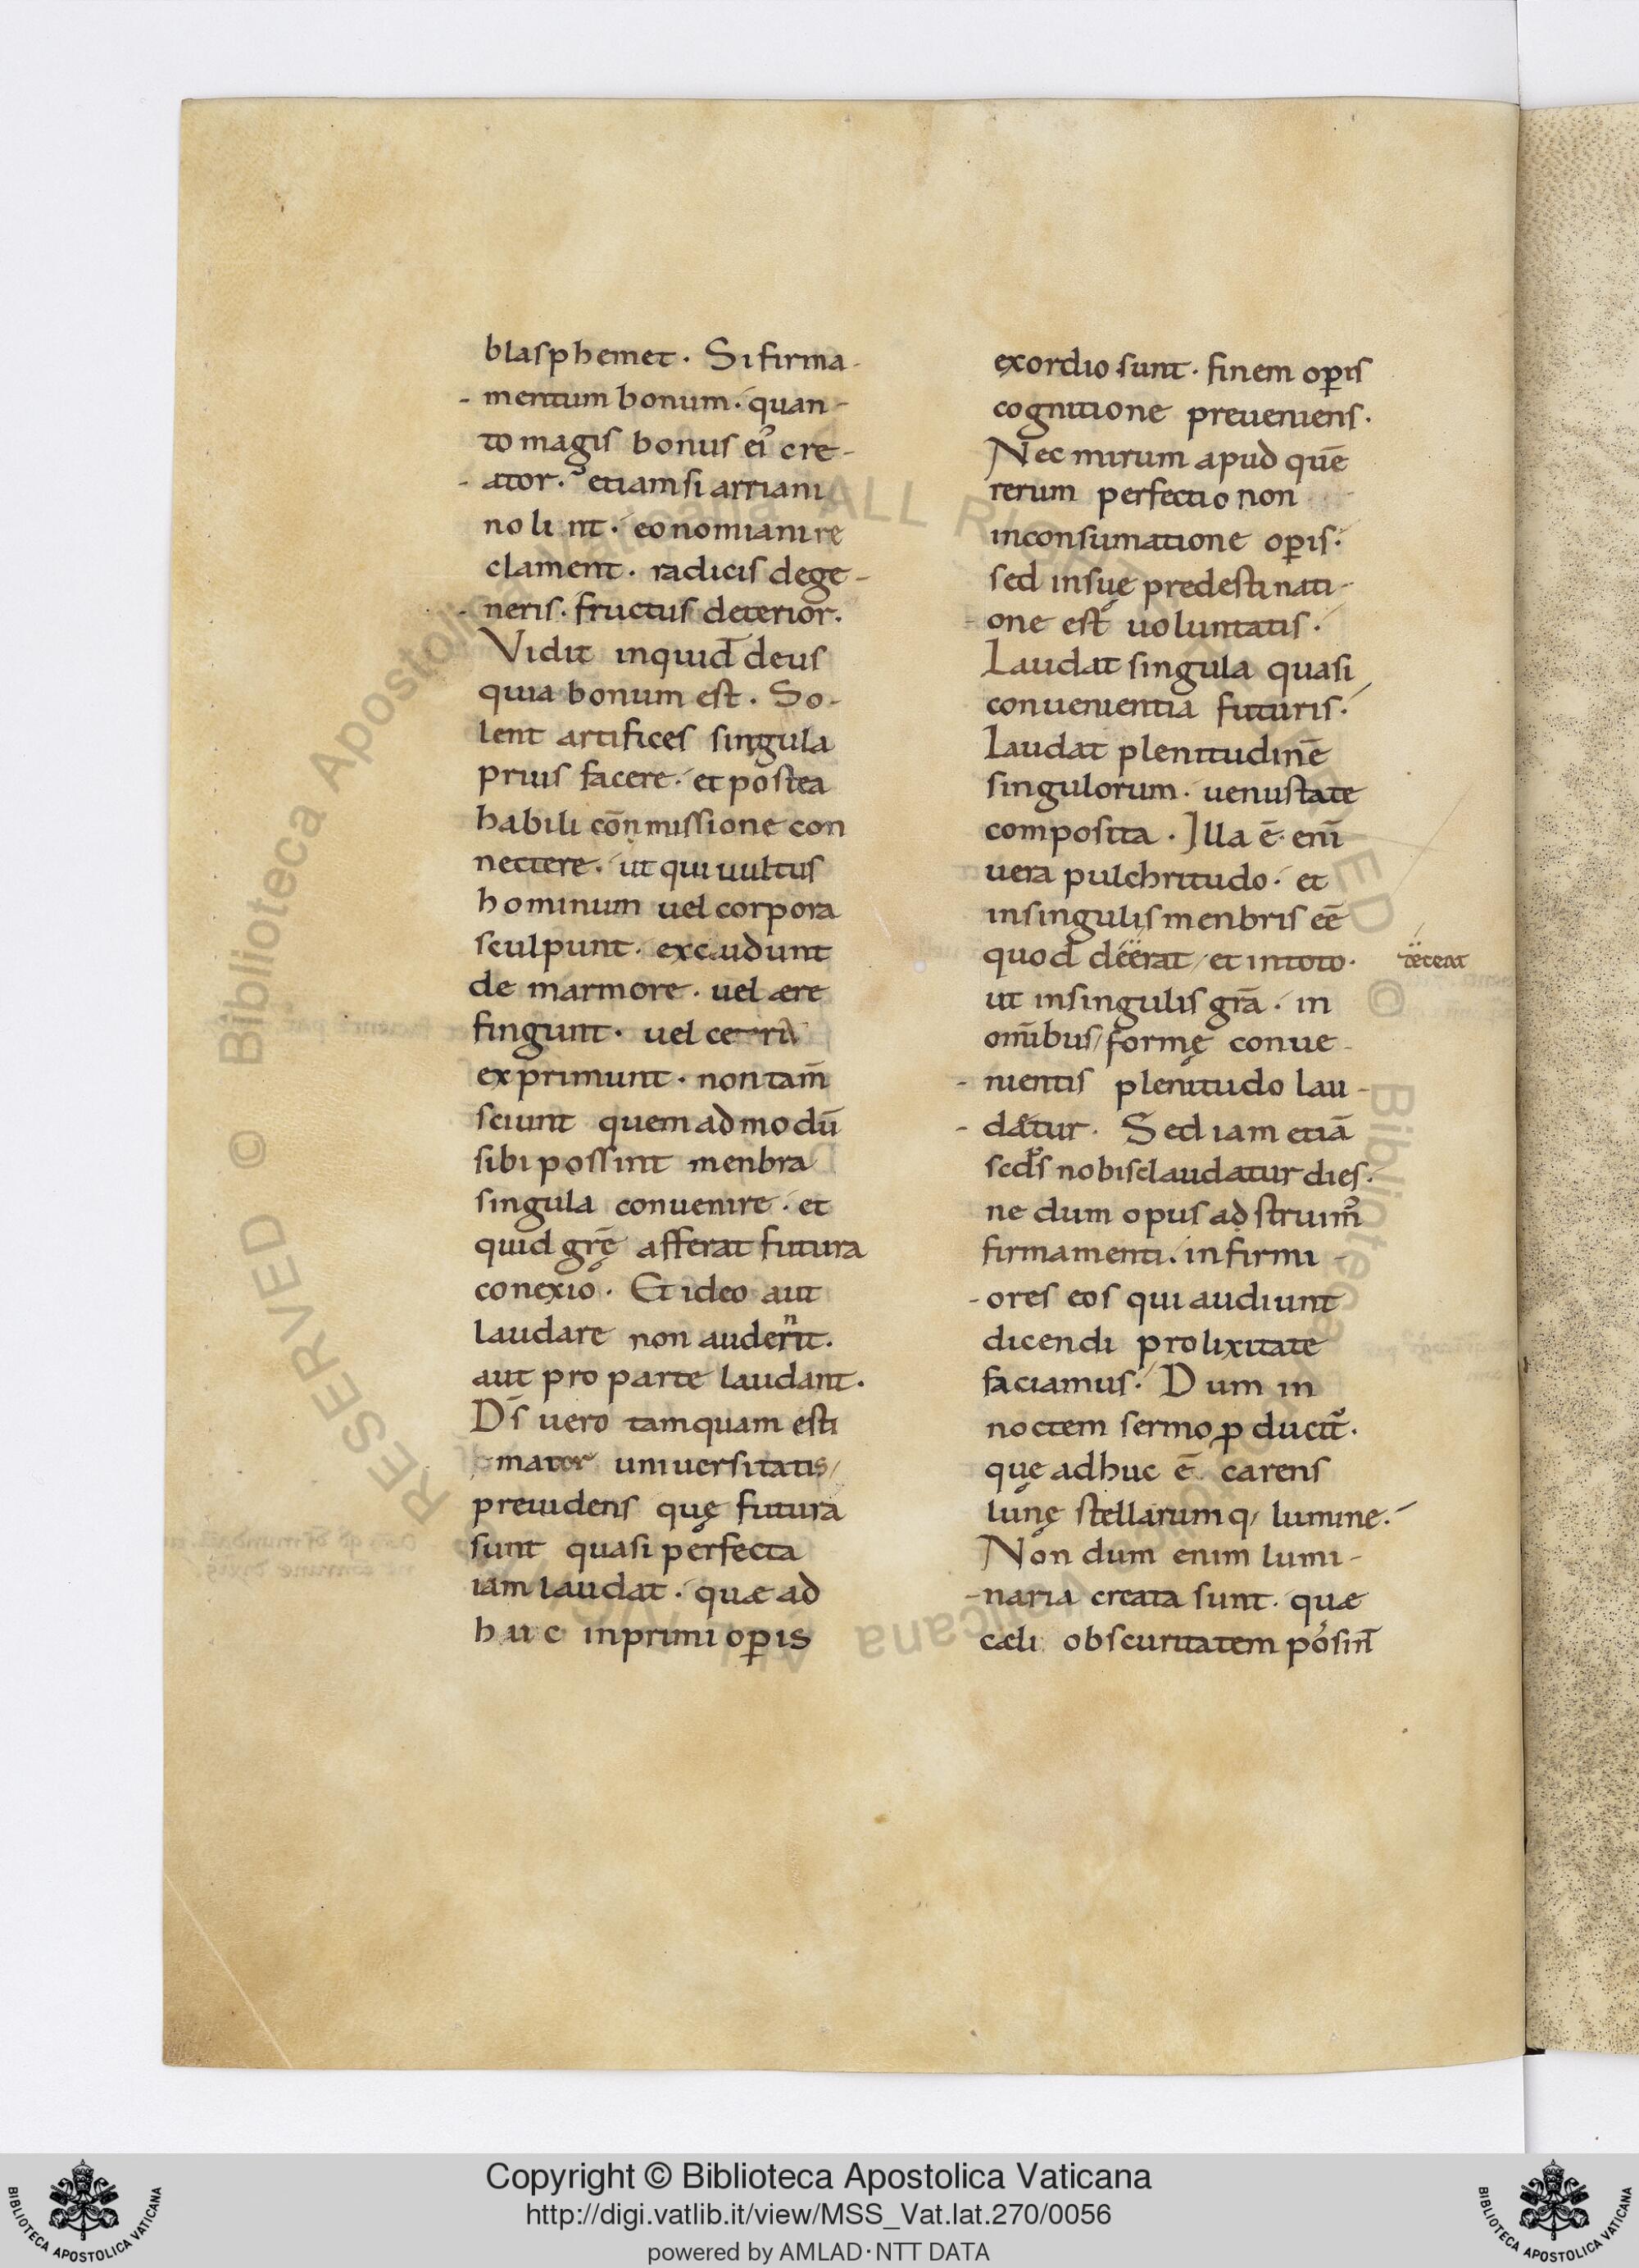 blasphemet. Si firma-
-mentum bonum. quan-
to magis bonus ei᾿ cre-
-ator. etiam si arriani
nolint. eonomiani re
clament. radicis dege-
-neris. fructus deterior.
Vidit inquid deus
quia bonum est. So-
lent artifices singula
prius facere. et postea
habili cōnmissione con
nectere. ut qui uultus
hominum uel corpora
sculpunt. excudunt
de marmore. uel ære
fingunt. uel
exprimunt. non tam̄
sciunt quemadmodū
sibi possint menbra
singula conuenire. et
quid grę̄ afferat futura
conexio. Et ideo aut
laudare non audent.
aut pro parte laudant.
D̄s uero tamquam esti
mator uniuersitatis
preuidens quę futura
sunt quasi perfecta
iam laudat. quæ ad
huc inprimi oꝑis
exordio sunt. finem oꝑis
cognitione preueniens.
Nec mirum apud quē
rerum perfectio non
inconsumatione oꝑis.
sed insuę predestinati-
one est uoluntatis.
Laudat singula quasi
conuenientia futuris.
Laudat plenitudinē
singulorum. uenustate
composita. Illa ē enī
uera pulchritudo. et
insingulis menbris eē
quod deerat et intoto.
deceat
ut insingulis grā. in
om̄ibus formę conue-
-nientis plenitudo lau-
-datur. Sed iam etiā
scd̄s nobis claudatur dies.
ne dum opus adstruim᾿
firmamenti. infirmi-
-ores eos qui audiunt
dicendi prolixitate
faciamus. Dum in
noctem sermo ꝓducit᾿.
quę adhuc ē carens
lunę stellarumq; lumine.
Non dum enim lumi-
-naria creata sunt. quæ
cæli obscuritatem posint
© Biblioteca Apostolica Vaticana ALL RIGHTS RESERVED © Biblioteca Apostolica Vaticana ALL RIGHTS RESERVED
Copyright © Biblioteca Apostolica Vaticana
http://digi.vatlib.it/view/MSS_Vat.lat.270/0056
powered by AMLAD·NTT DATA
BIBLIOTECA APOSTOLICA VATICANA
BIBLIOTECA APOSTOLICA VATICANA